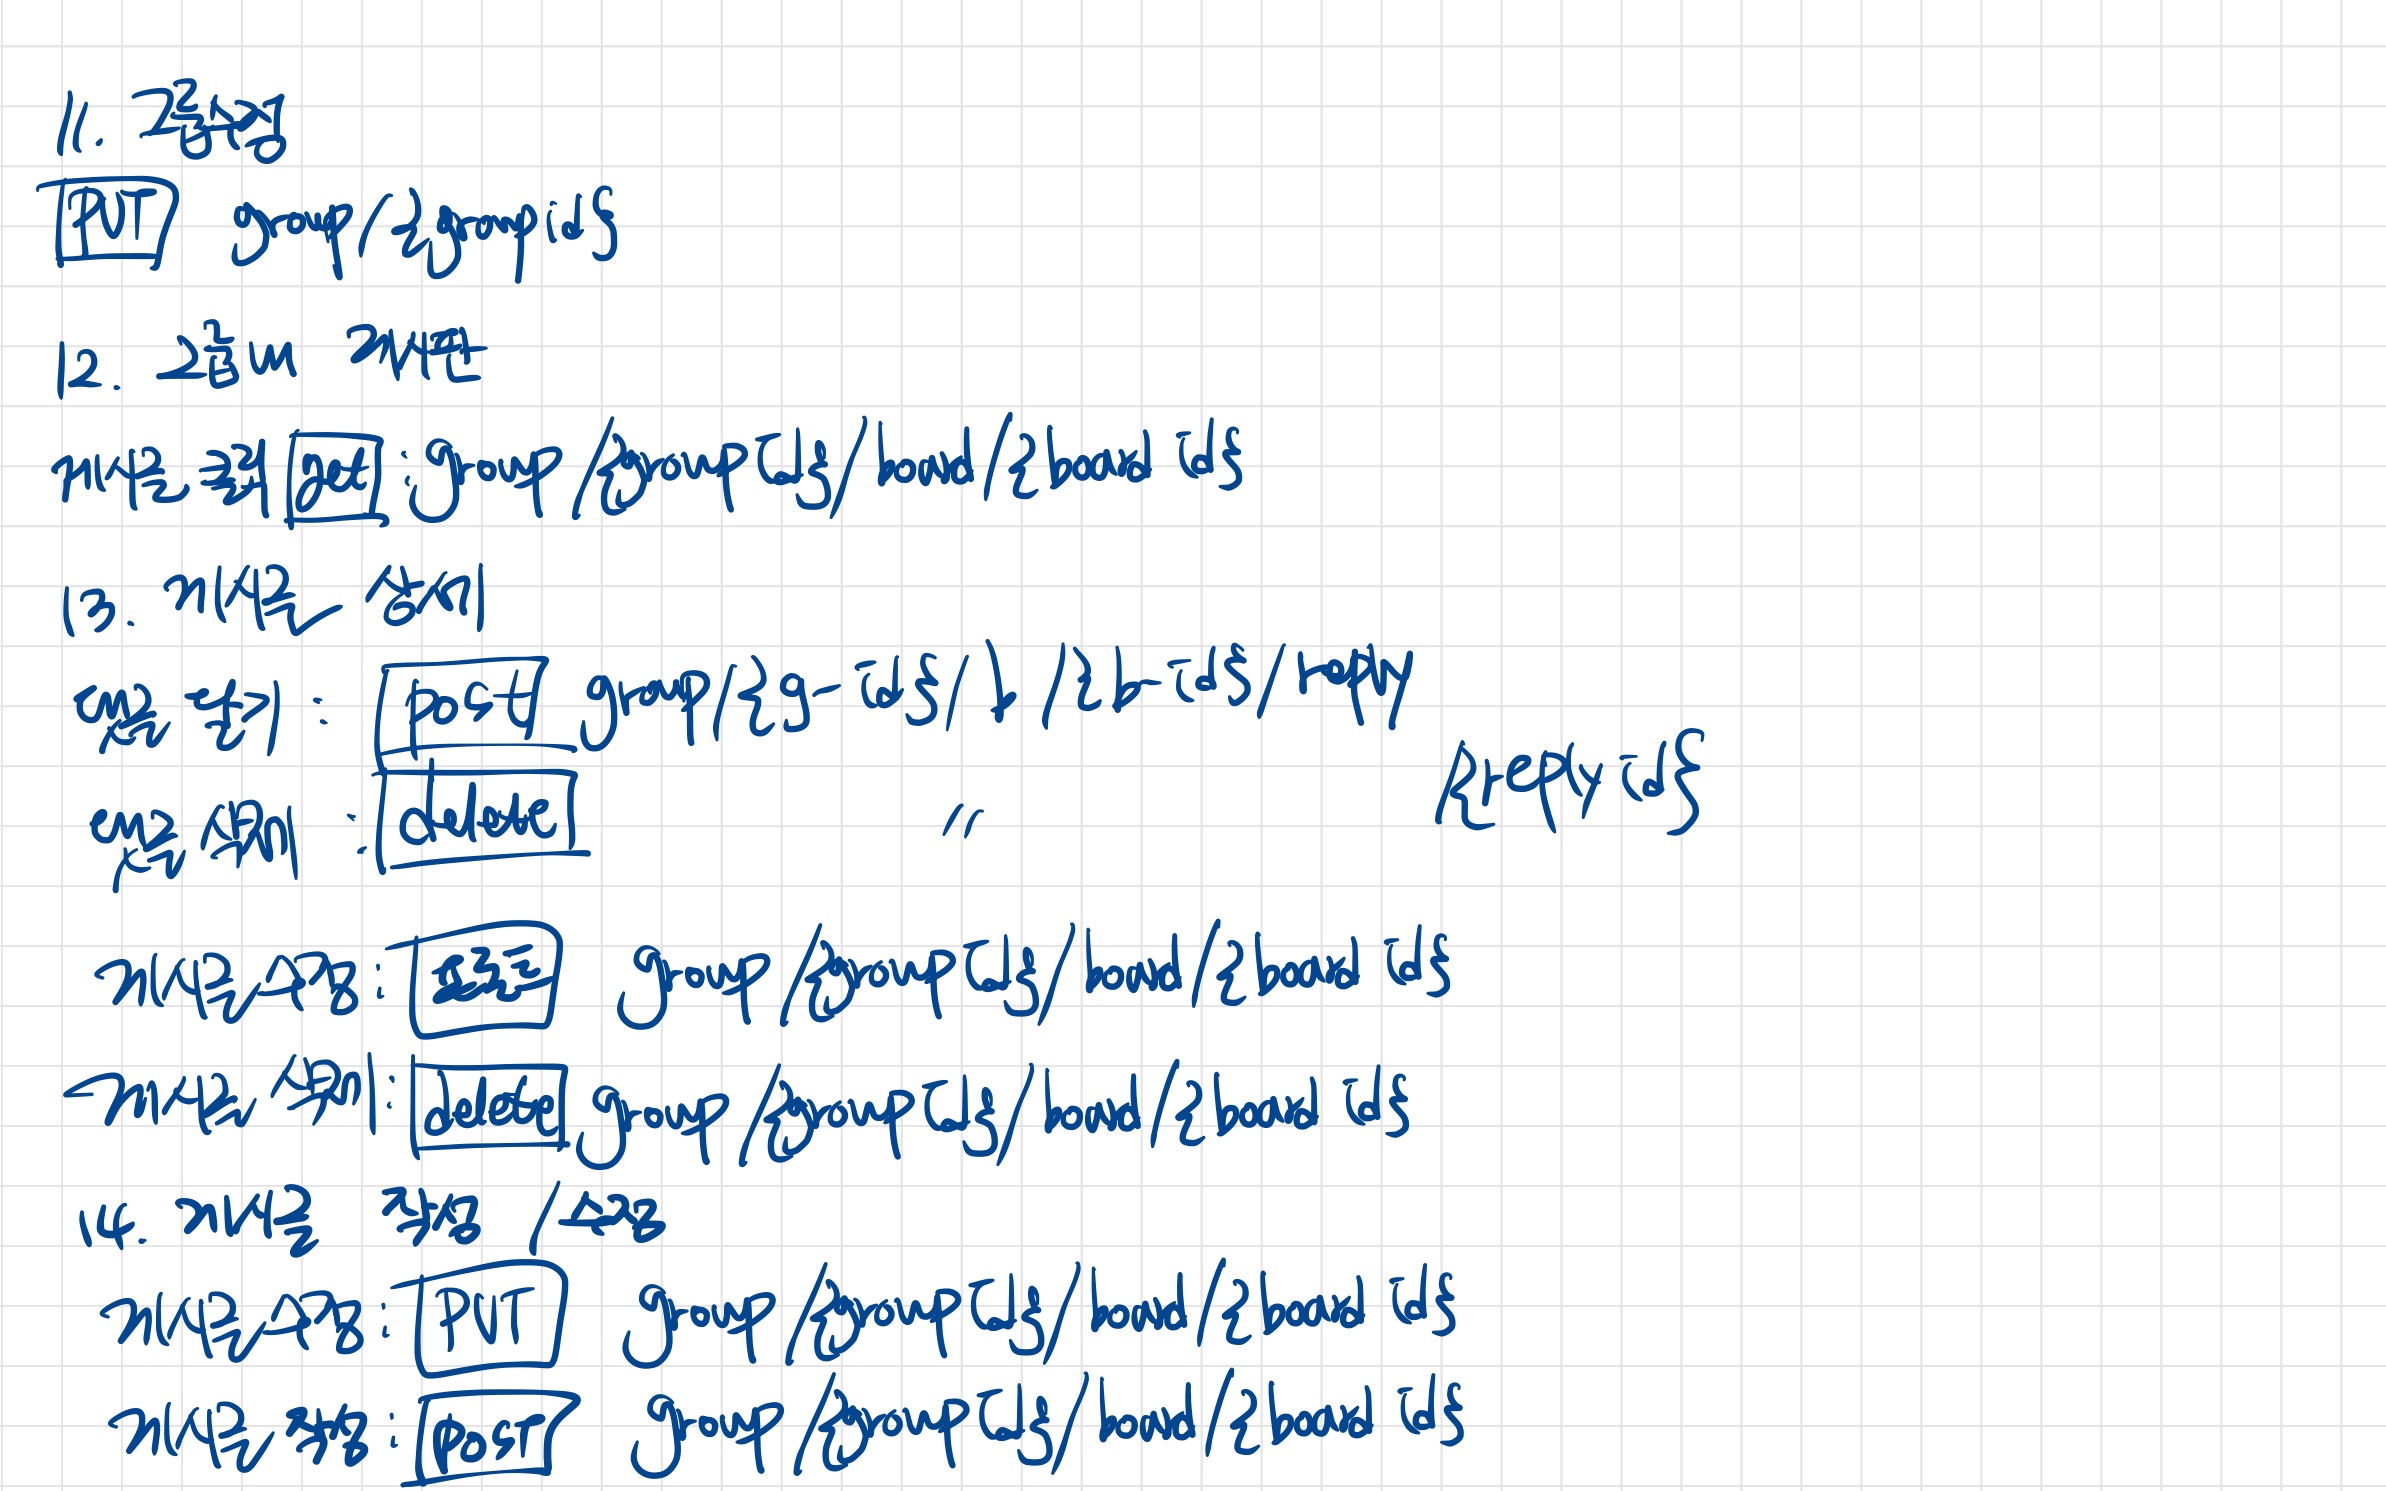 11. 그룹수정
PUT group/{groupid}
12. 그룹내 게시판
게시글 조회 get : group/{groupId}/board/{board id}
13. 게시글 상세
댓글 쓰기 : post group/{g-id}/b/{b-id}/reply
댓글 삭제 : delete 〃 {reply id}
게시글 수정 : group/{groupId}/board/{board id}
게시글 삭제 : delete group/{groupId}/board/{board id}
14. 게시글 작성 / 수정
게시글 수정 : PUT group/{groupId}/board/{board id}
게시글 작성 : Post group/{groupId}/board/{board id}